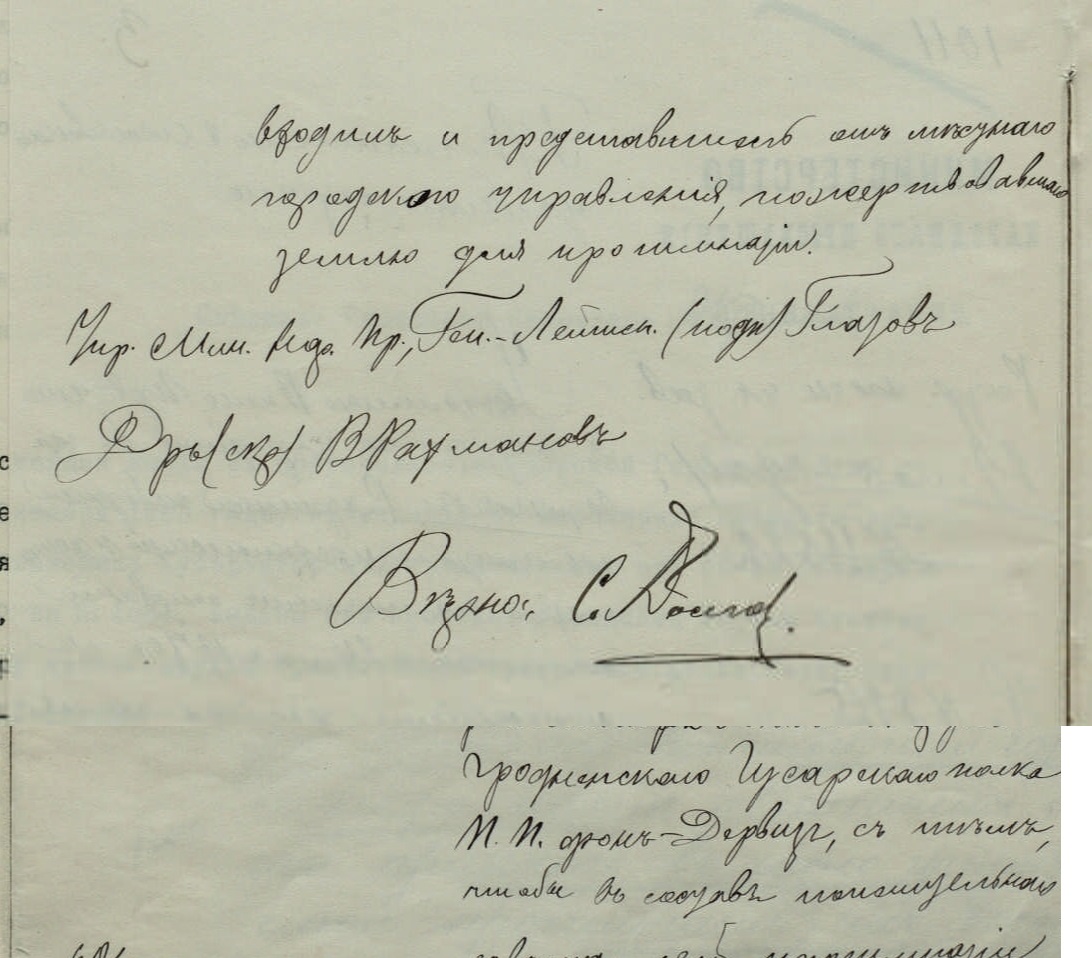 входилъ и представитель отъ мѣстнаго
городского управленія, пожертвовавшаго
землю для прогимназіи.
Упр. Мин. Нар. Пр., Ген.-Лейтен. (подп) Глазовъ
Дир. (скр) В Рахмановъ
Вѣрно: С.
Гродненскаго Гусарскаго полка
П. П. фонъ-Дервизъ, съ тѣмъ,
чтобы въ составъ попечительнаго
сей прогимназіи